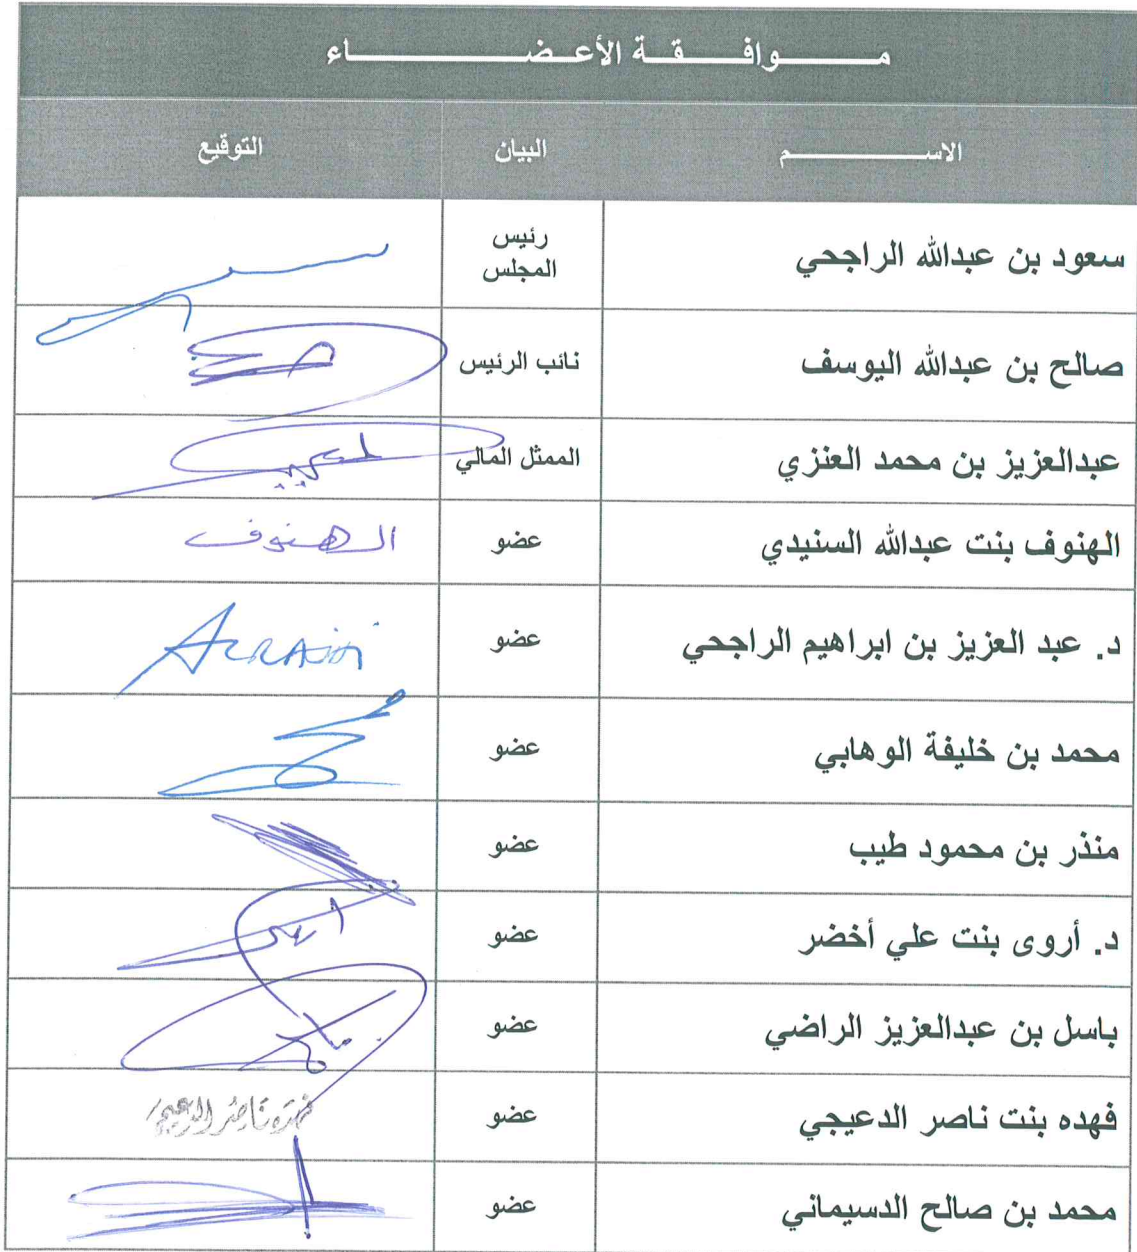 مــــوافــــقــة الأعــضــــــــاء
الاســــــــم البيان التوقيع
سعود بن عبدالله الراجحي رئيس المجلس
صالح بن عبدالله اليوسف نائب الرئيس
عبدالعزيز بن محمد العنزي الممثل المالي
الهنوف بنت عبدالله السنيدي عضو الهنوف
د. عبد العزيز بن ابراهيم الراجحي عضو ALRAJHI
محمد بن خليفة الوهابي عضو
منذر بن محمود طيب عضو
د. أروى بنت علي أخضر عضو
باسل بن عبدالعزيز الراضي عضو
فهده بنت ناصر الدعيجي عضو فهده ناصر الدعيجي
محمد بن صالح الدسيماني عضو